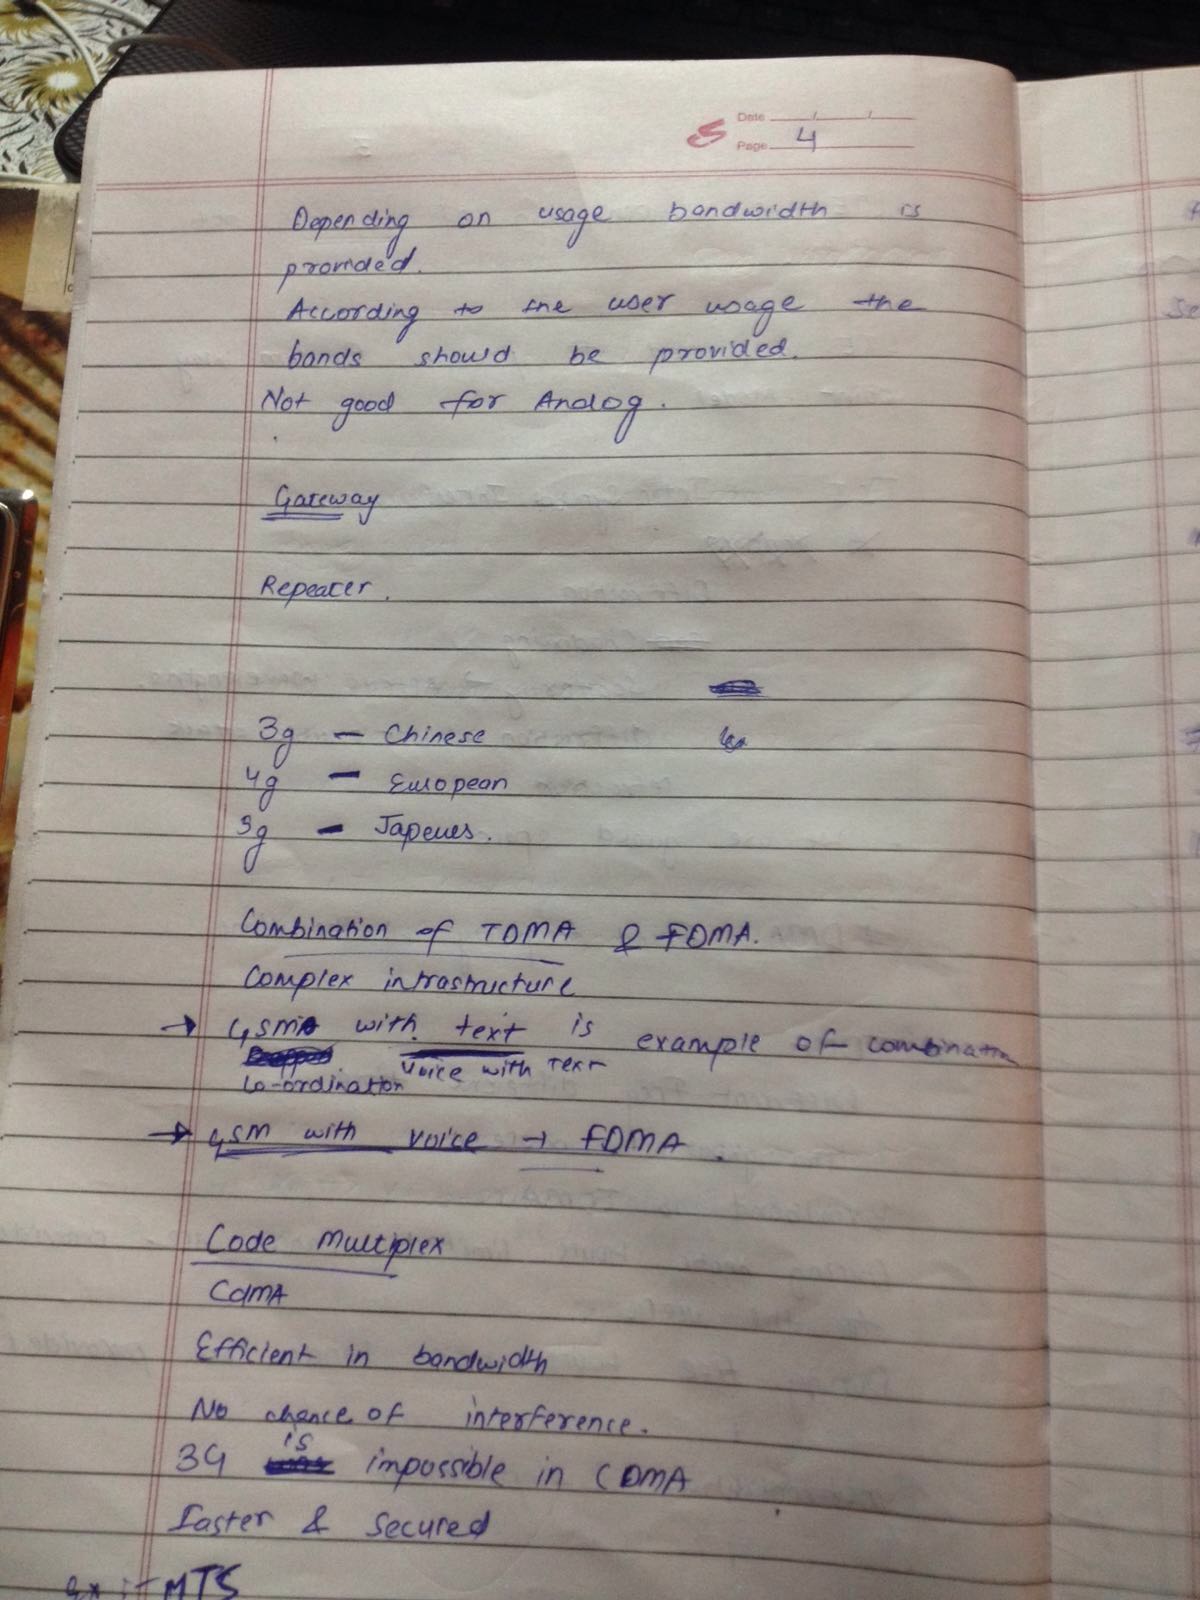 Date
Page 4
Depending on usage bandwidth is
provided.
According to the user usage the
bands should be provided.
Not good for Analog.
Gateway
Repeater.
3g - Chinese
4g - European
3g - Japenes.
Combination of TDMA & FDMA.
Complex intrastructure
→ GSM with text is example of combination
Voice with text
Co-ordination
→ GSM with voice → FDMA.
Code Multiplex
CdMA
Efficient in bandwidth
No chance of interference.
3G is impossible in CDMA
Faster & Secured
Ex :- MTS